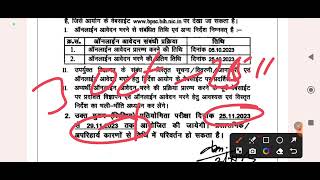 है, जिसे आयोग के वेबसाईट www.bpsc.bih.nic.in पर देखा जा सकता है।
I. ऑनलाईन आवेदन भरने से संबंधित तिथि एवं अन्य निर्देश निम्नवत् है:-
क्र.सं. ऑनलाईन आवेदन संबंधी प्रक्रिया तिथि
1. ऑनलाईन आवेदन प्रारम्भ करने की तिथि दिनांक 25.10.2023
2. ऑनलाईन आवेदन भरने की अंतिम तिथि दिनांक
II. उपर्युक्त विज्ञापन के
वेबसाईट पर
III. अभ्यर्थी ऑनलाईन आवेदन भरने की प्रक्रिया प्रारम्भ करने
पर प्रदर्शित विज्ञापन एवं ऑनलाईन आवेदन भरने हेतु आवश्यक एवं विस्तृत
निर्देश का भली-भाँति अध्ययन कर लेंगे।
2. उक्त प्रतियोगिता परीक्षा दिनांक 25.11.2023
से 29.11.2023 तक आयोजित की जायेगी।
अपरिहार्य कारणों से तिथि में परिवर्तन हो सकता है।